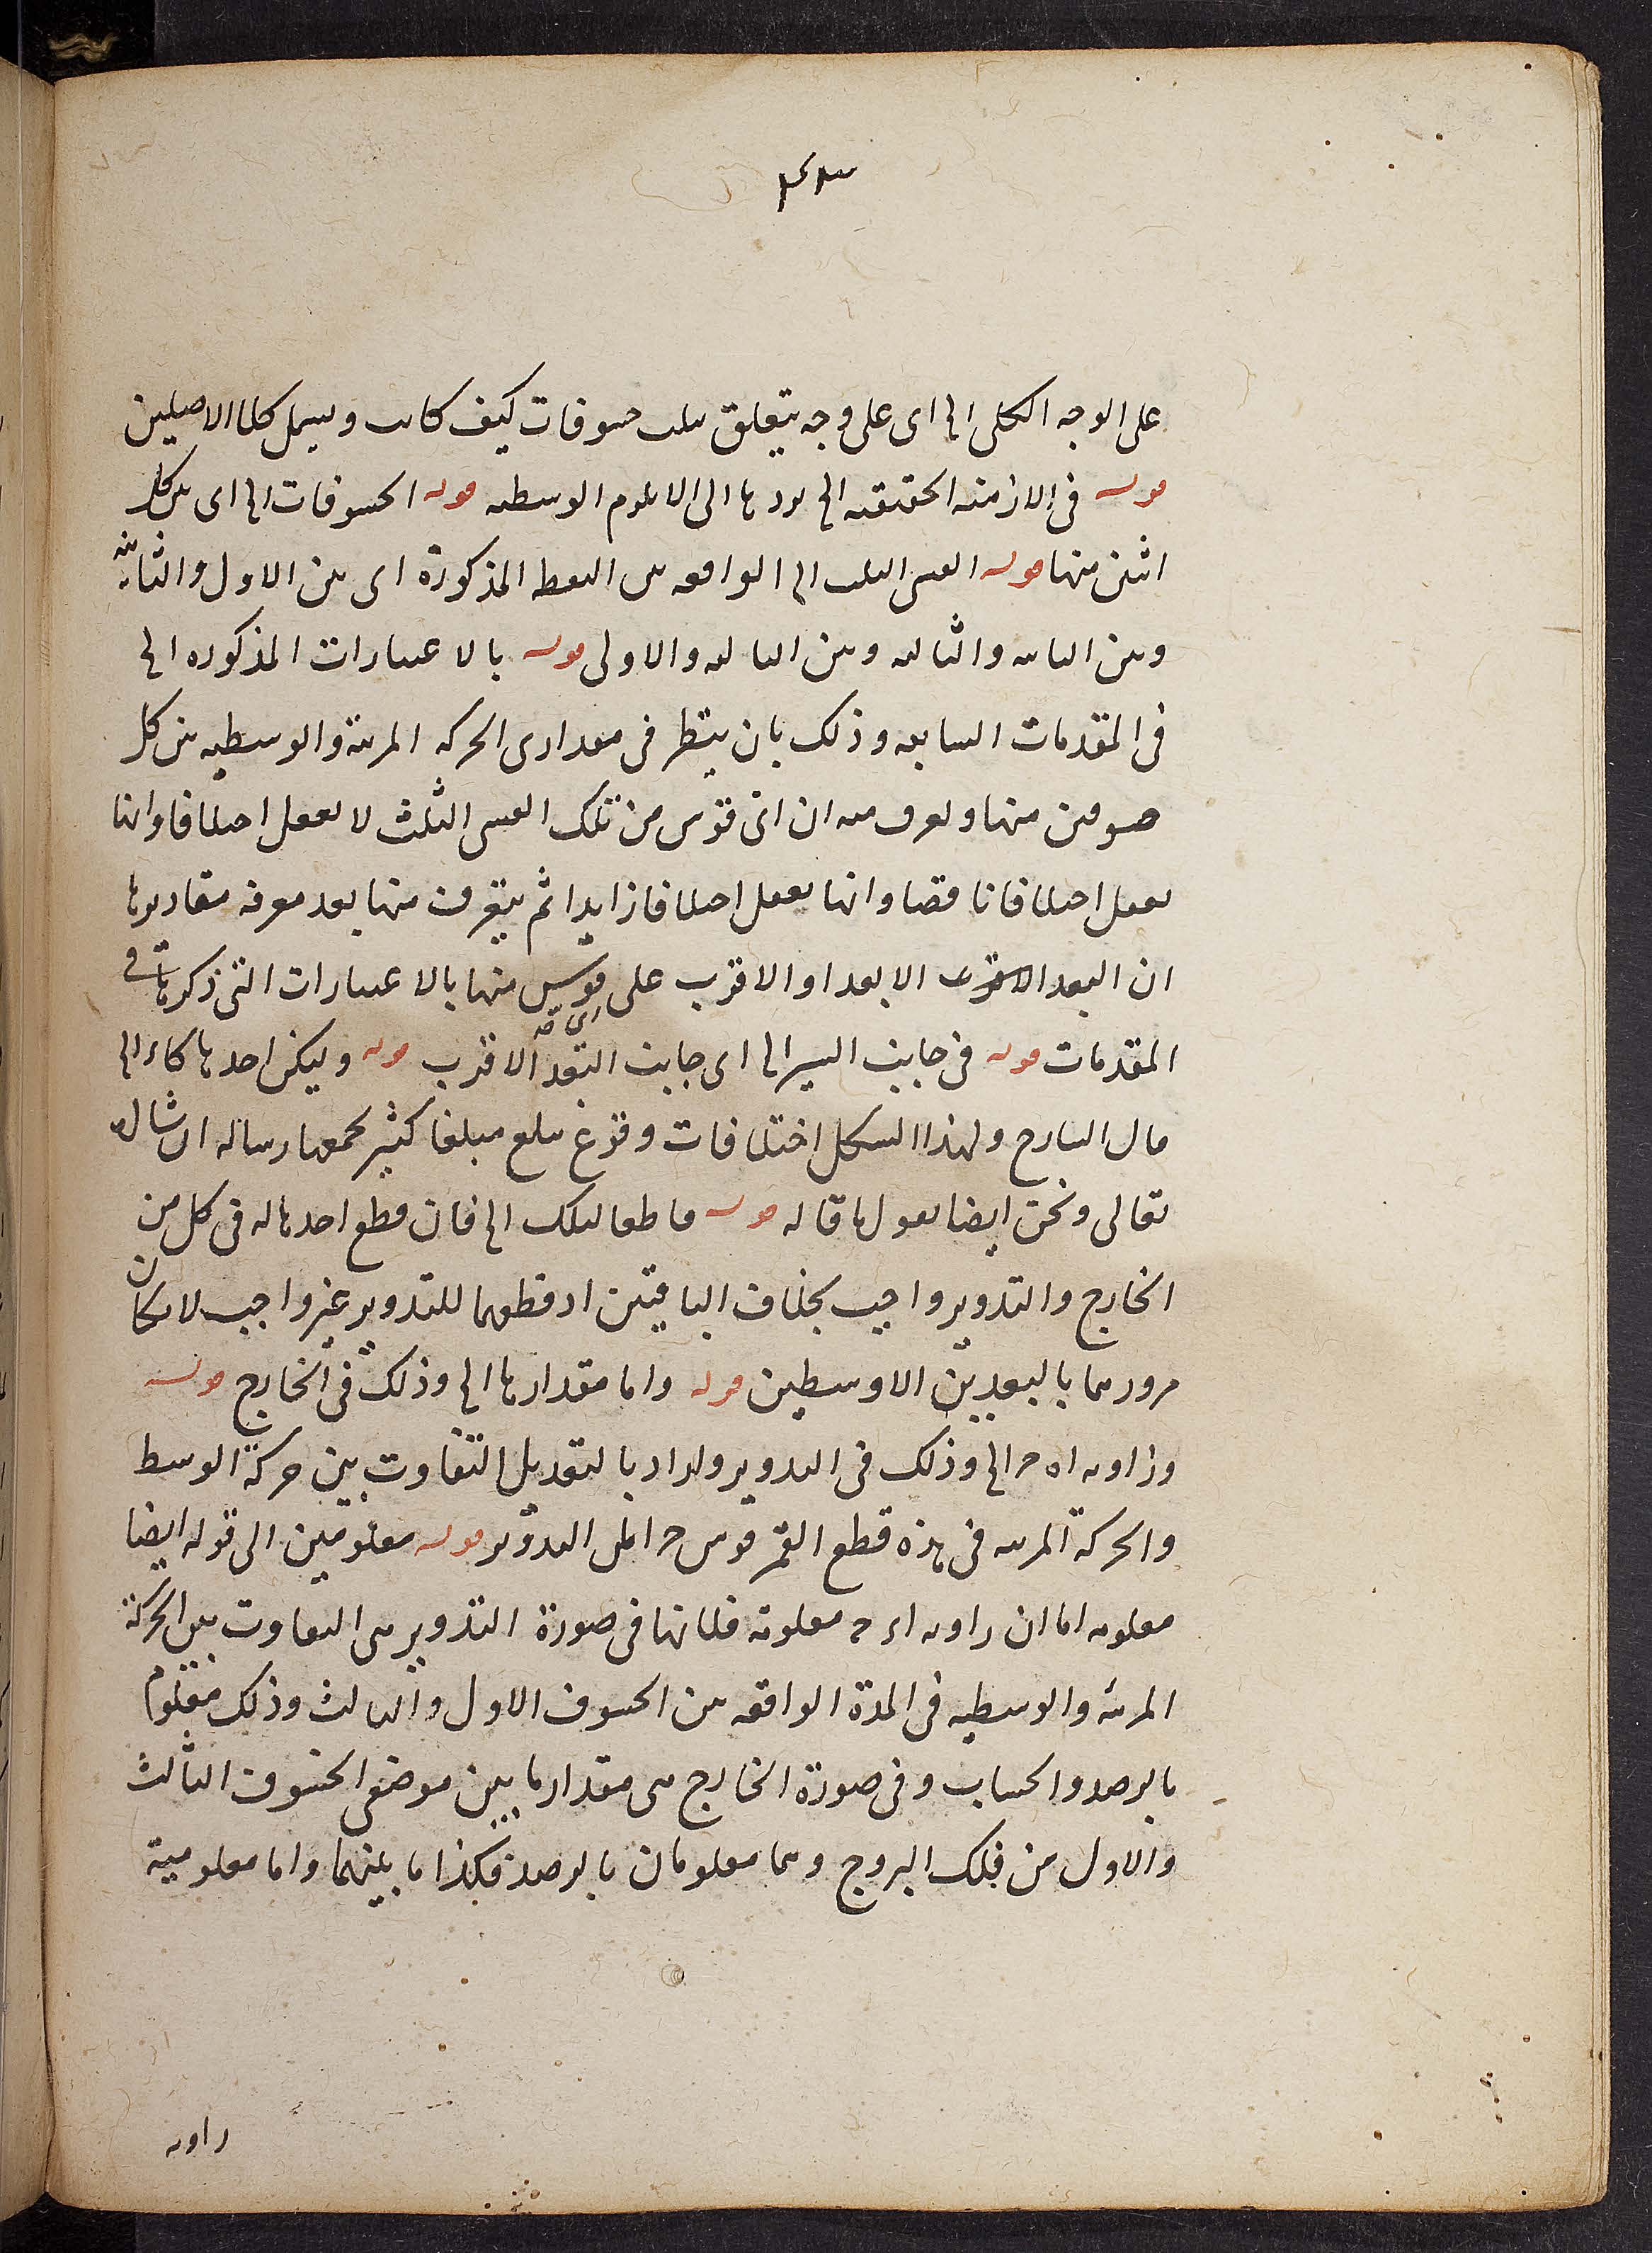 على الوجه الكلى الخ اى على وجه يتعلق بثلث خسوفات كيف كانت ويشمل كلا الاصلين
قوله فى الازمنة الحقيقية الخ بردها الى الايام الوسطيه قوله الخسوفات الخ اى بين كل
اثنين منها قوله القسى الثلث الخ الواقعه بين النقط المذكورة اى بين الاول والثانية
وبين الثانيه والثالثه وبين الثالثه والاولى قوله بالاعتبارات المذكوره الخ
فى المقدمات السابقه وذلك بان ينظر فى مقدارى الحركه المرئية والوسطيه بين كل
خسوفين منها ويعرف منه ان اى قوس من تلك القسى الثلث لا يفعل اختلافا وانها
يفعل اختلافا ناقصا وانها يفعل اختلافا زايدا ثم يتعرف منها بعد معرفه مقاديرها
ان البعد الابعد او الاقرب على اى قوس منها بالاعتبارات التى ذكرناها فى
المقدمات قوله فى جانب السير الخ اى جانب البعد الاقرب قوله وليكن احدها كاء الخ
قال الشارح ولهذا الشكل اختلافات وقوع يبلغ مبلغا كثير يجمعها رساله ان شاالله
تعالى ونحن ايضا نقول ما قاله قوله قاطعا لفلك الخ فان قطع احدها له فى كل من
الخارج والتدوير واجب بخلاف الباقيتين اذ قطعهما للتدوير غير واجب لامكان
مرورهما بالبعدين الاوسطين قوله واما مقدارها الخ وذلك فى الخارج قوله
وزاويه اه ح الخ وذلك فى التدوير والمراد بالتعديل التفاوت بين حركة الوسط
والحركة المرئيه فى هذه قطع القمر قوس ح ا من التدوير قوله معلومتين الى قوله ايضا
معلومه اما ان زاويه اء ح معلومة فلانها فى صورة التدوير هى التفاوت بين الحركة
المرئيه والوسطيه فى المدة الواقعه بين الخسوف الاول والثالث وذلك معلوم
بالرصد والحساب وفى صورة الخارج هى مقدار ما بين موضعى الخسوف الثالث
والاول من فلك البروج وهما معلومان بالرصد فكذا ما بينهما واما معلومية
زاويه